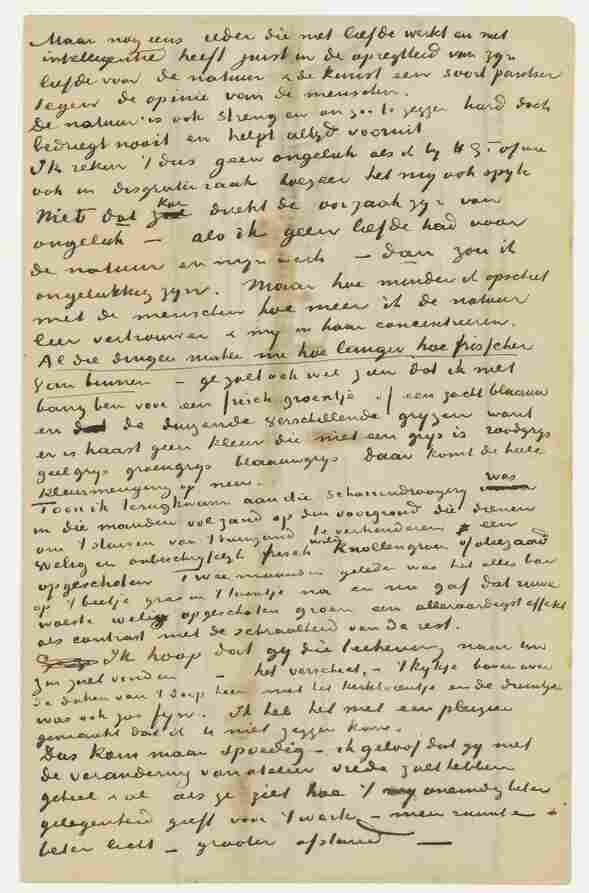 Maar nog eens ieder die met liefde werkt en met
intelligentie heeft juist in de opregtheid van zyn
liefde voor de natuur & de kunst een soort pantser
tegen de opinie van de menschen.
De natuur is ook streng en om zoo te zeggen hard doch
bedriegt nooit en helpt altyd vooruit
Ik reken 't dus geen ongeluk als ik by H.G.T. of
ook in disgratie raak hoezeer het my ook spyt
Niet dat kan direkt de oorzaak zyn van
ongeluk – als ik geen liefde had voor
de natuur en myn werk – dan zou ik
ongelukkig zyn. Maar hoe minder ik opschiet
met de menschen hoe meer ik de natuur
leer vertrouwen & my in haar concentreeren.
Al die dingen maken me hoe langer hoe frisscher
van binnen – ge zult ook wel zien dat ik niet
bang ben voor een frisch groentje of een zacht blaauw
en de duizende verschillende gryzen want
er is haast geen kleur die niet een grys is roodgrys
geelgrys groengrys blaauwgrys daar komt de heele
kleurmenging op neer.
Toen ik terugkwam aan die Scharrendroogery was
in die manden vol zand op den voorgrond die dienen
om 't stuiven van 't duinzand te verhinderen een
welig en onbeschryfelyk frisch wild knollengroen of oliezaad
opgeschoten Twee maanden geleden was het alles bar
op 't beetje gras in 't tuintje na en nu gaf dat ruwe
woeste welig opgeschoten groen een alleraardigst effekt
als contrast met de schraalheid van de rest.
Ik hoop dat gy die teekening naar uw
zin zult vinden – het verschiet, – 't kykje boven over
de daken van 't dorp heen met het kerktorentje en de duintjes
was ook zoo fyn. Ik heb het met een plezier
gemaakt dat ik U niet zeggen kan.
Dus kom maar spoedig – ik geloof dat gy met
de verandering van atelier vrede zult hebben
geheel & al als ge ziet hoe 't my oneindig beter
gelegenheid geeft voor 't werk – meer ruimte –
beter licht – grooter afstand –